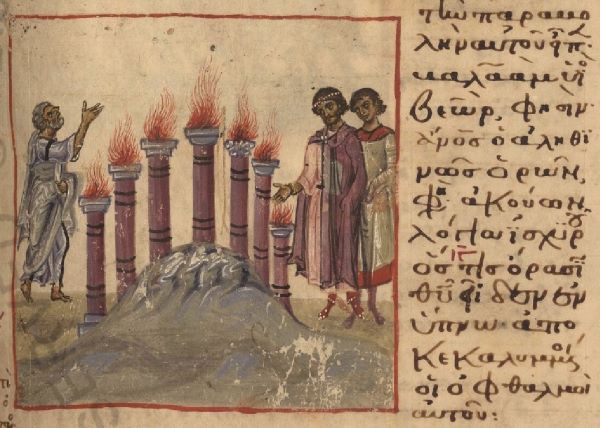 τὴν παραβο
λὴν αὐτοῦ εἶπ
βαλαὰμ υἱο
βεώρ, φησὶν
ἄνος ὁ ἀληθι
νῶς ὁρῶν,
φη ἀκούων
λόγια ἰσχυρ
ὅστις ὅρασϊ
θῦ εἶδεν ἐν
ὕπνω ἀπο
κεκαλυμμοι
οἱ ὀφθαλμοὶ
αὐτοῦ: